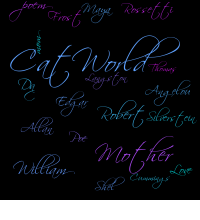 poem
Frost
Maya
Rossetti
poems
Cat World
Thomas
Langston
Dr
Edgar
Angelou
Robert
Silverstein
Allan
Poe
Mother
William
Love
Cummings
Shel